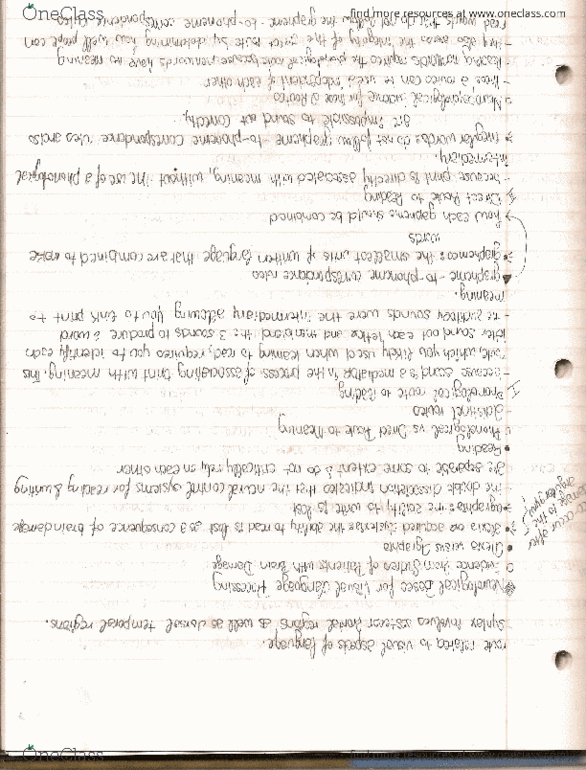 OneClass
find more resources at www.oneclass.com
route relating to visual aspects of language.
Syntax involves anterior frontal regions as well as dorsal temporal regions.
Neurological Bases for Visual Language Processing
Evidence from Studies of Patients with Brain Damage
Alexia versus Agraphia
Alexia: an acquired the ability to read is lost as a consequence of brain damage
agraphia: the ability to write is lost
can occur after
damage to the
angular gyrus
- the double dissociation indicates that the neural control systems for reading & writing
are separable to some extent & do not critically rely on each other
Reading
Phonological vs Direct Route to Meaning
- 2 distinct routes
I Phonological route to Reading
- because sound is a mediator in the process of associating print with meaning. This
route, which you likely used when learning to read, requires you to identify each
letter sound out each letter and then blend the 3 sounds to produce a word
- the auditory sounds were the intermediary allowing you to link print to
meaning.
grapheme-to-phoneme correspondence rules
graphemes: the smallest units of written language that are combined to make
words
how each grapheme should be combined
II Direct Route to Reading
- because print is directly associated with meaning, without the use of a phonological
intermediary.
irregular words: do not follow grapheme-to-phoneme correspondence rules and so
are impossible to sound out correctly.
Neuropsychological evidence for these 2 Routes
- these 2 routes can be used independent of each other
Reading nonwords requires the phonological route because nonwords have no meaning
- they also assess the integrity of the direct route by determining how well people can
read words that do not follow the grapheme-to-phoneme correspondence rules
OneClass
find more resources at www.oneclass.com